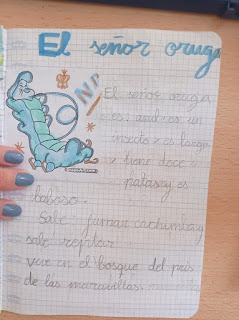 El señor oruga
El señor oruga
es: azul es un
insecto es largo
y tiene doce
patas y es
baboso.
Sabe fumar cachimba y
sabe reptar
vive en el bosque del país
de las maravillas.